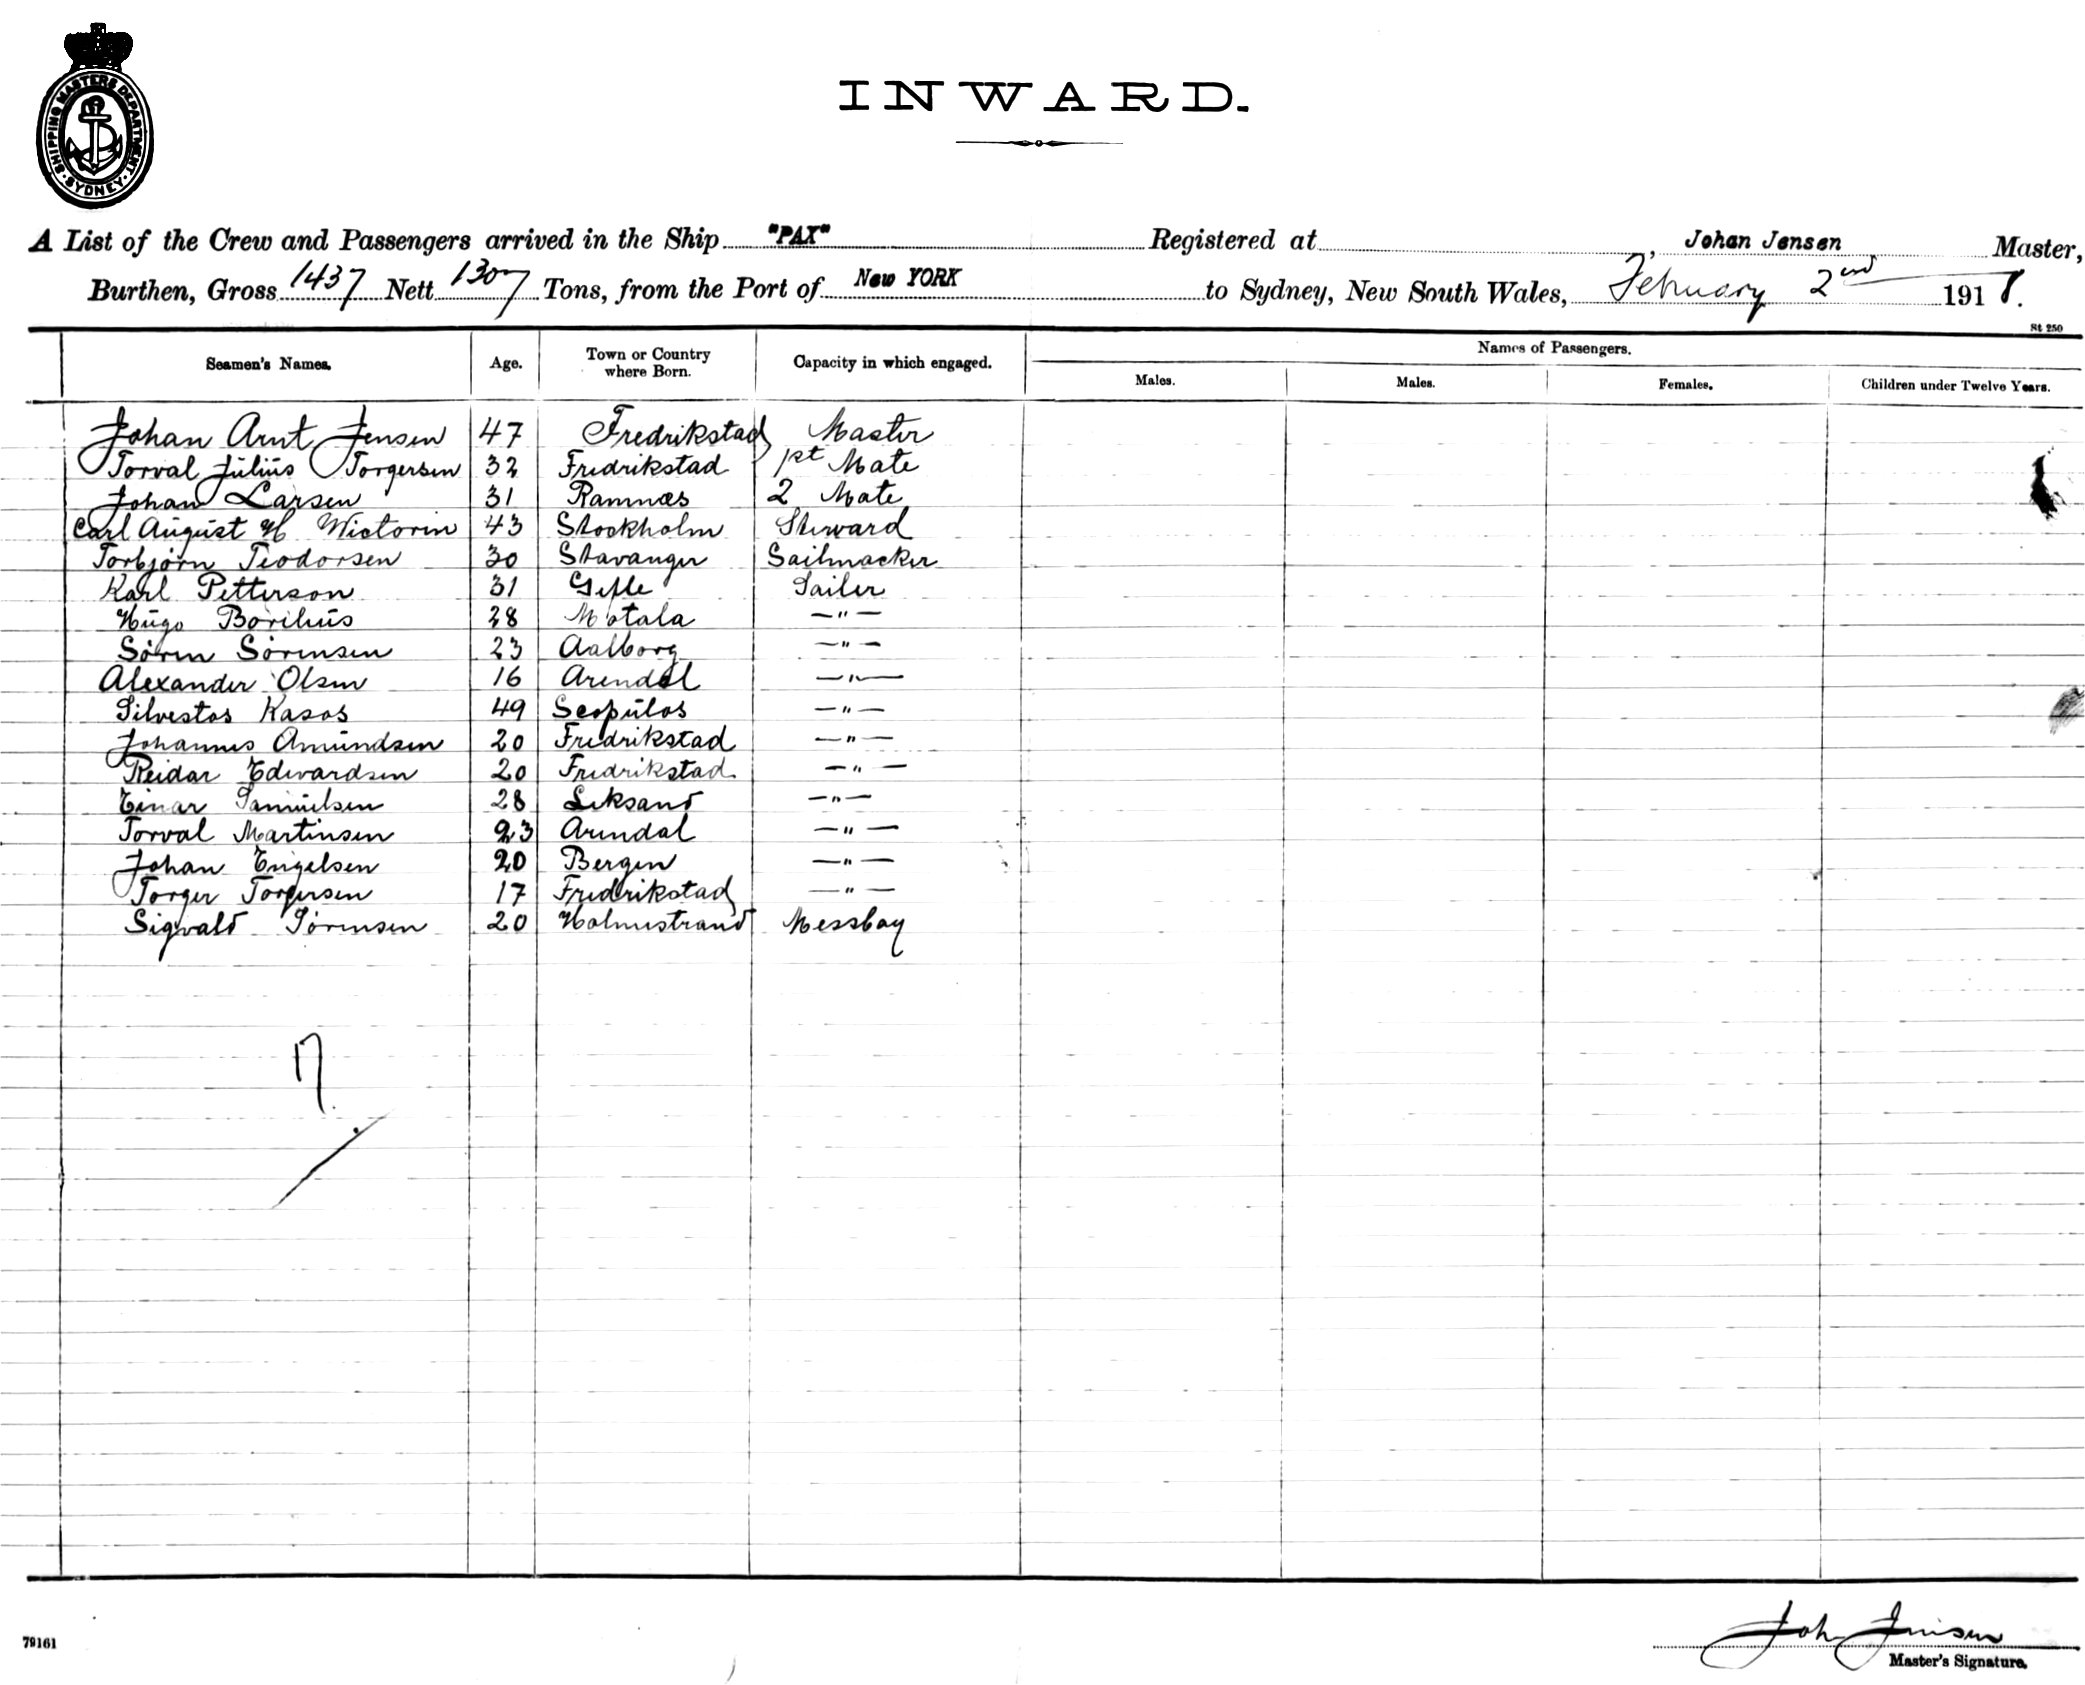 SHIPPING MASTERS DEPARTMENT · SYDNEY ·
INWARD.
A List of the Crew and Passengers arrived in the Ship "PAX" Registered at , Johan Jensen Master,
Burthen, Gross 1437 Nett 1307 Tons, from the Port of New YORK to Sydney, New South Wales, February 2nd 1918.
St 250
Seamen's Names. Age. Town or Country where Born. Capacity in which engaged. Names of Passengers.
Males. Males. Females. Children under Twelve Years.
Johan Arnt Jensen 47 Fredrikstad Master
Torval Julius Torgersen 32 Fredrikstad 1st Mate
Johan Larsen 31 Ramnæs 2 Mate
Carl August H Wictorin 43 Stockholm Steward
Torbjørn Teodorsen 30 Stavanger Sailmacker
Karl Petterson 31 Gefle Sailer
Hugo Borihus 28 Motala —"—
Søren Sørensen 23 Aalborg —"—
Alexander Olsen 16 Arendal —"—
Silvestos Kasos 49 Scopulos —"—
Johannes Amundsen 20 Fredrikstad —"—
Reidar Edwardsen 20 Fredrikstad —"—
Einar Samuelsen 28 Leksand —"—
Torval Martinsen 23 Arendal —"—
Johan Engelsen 20 Bergen —"—
Torger Torgersen 17 Fredrikstad —"—
Sigvald Sørensen 20 Holmestrand Messboy
17
79161
Joh Jensen
Master's Signature.